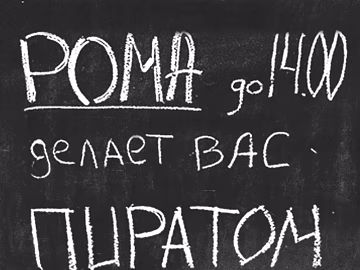 РОМА до 14.00
делает ВАС
ПИРАТОМ